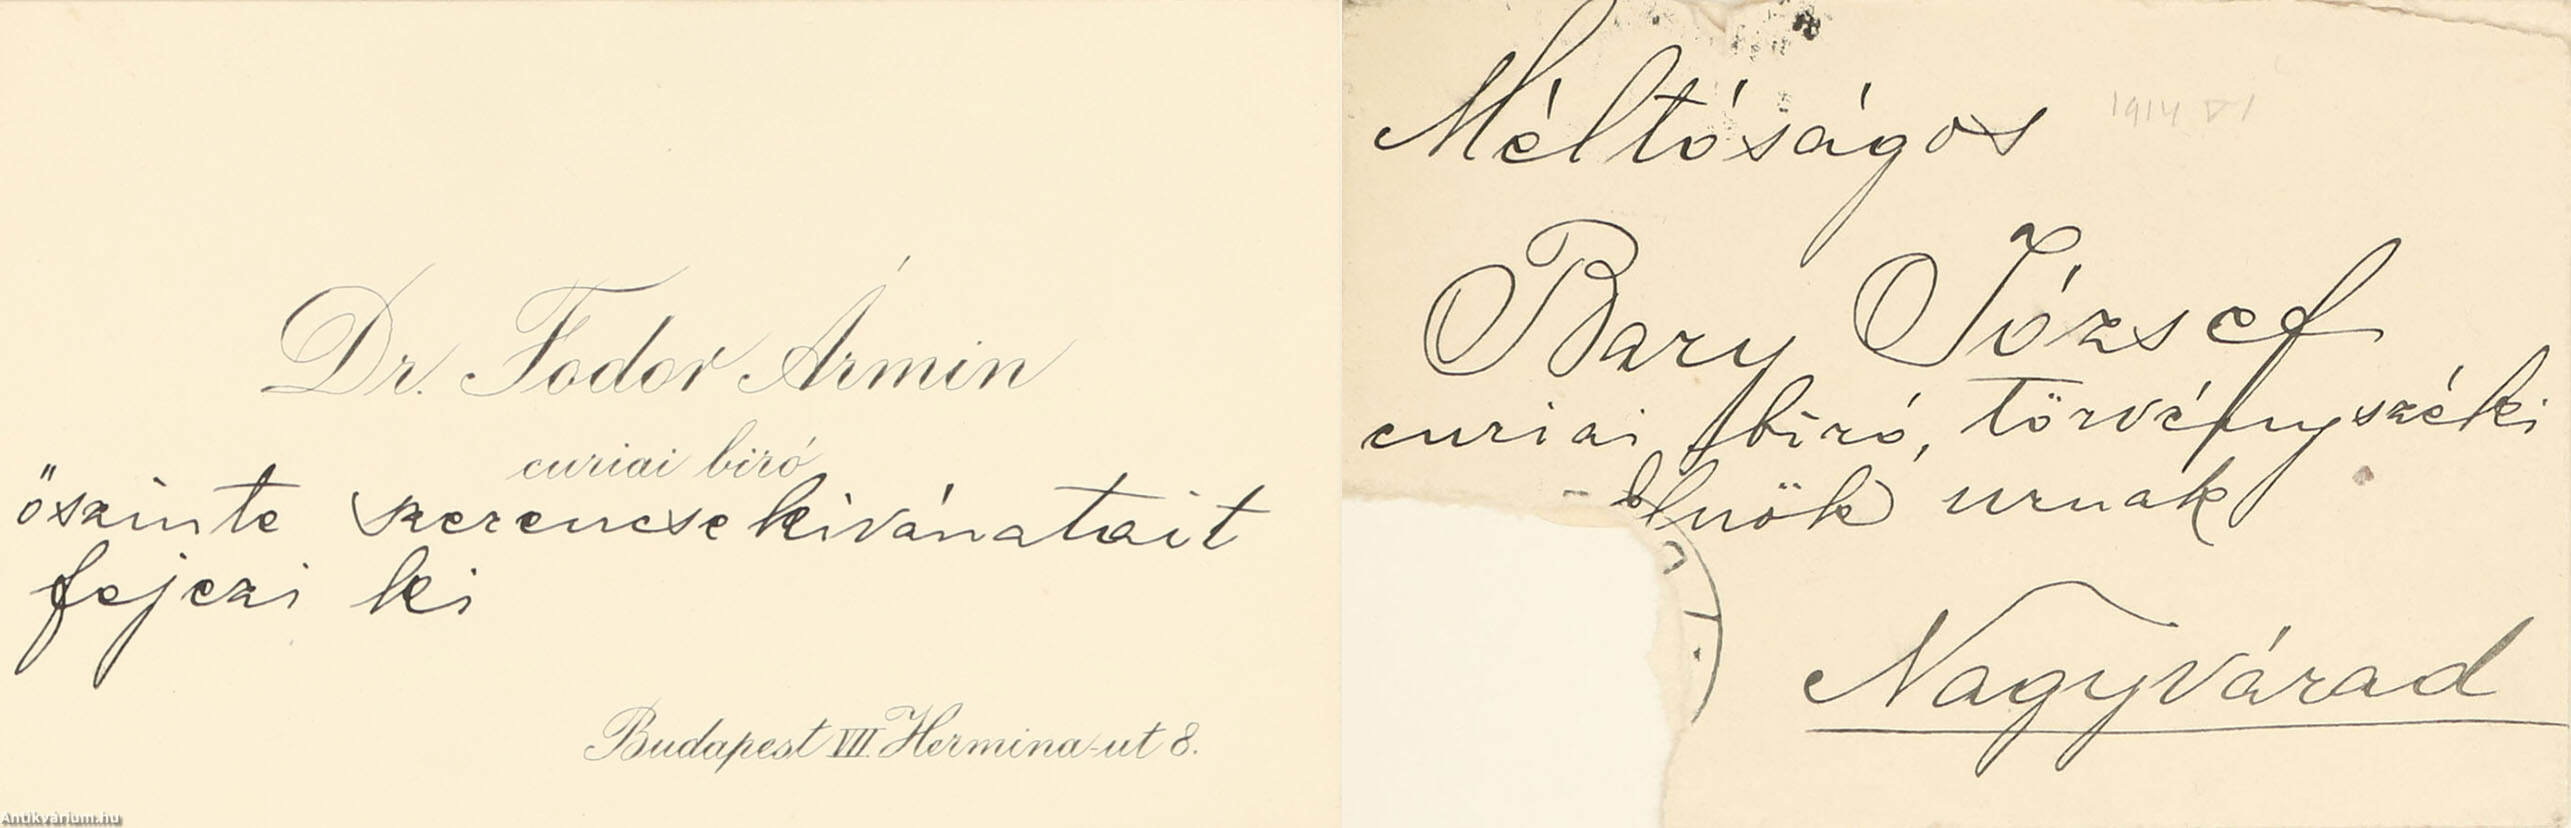 Dr. Fodor Ármin
curiai biró
őszinte szerencsekivánatait
fejezi ki
Budapest VII. Hermina-ut 8.
Antikvárium.hu
Méltóságos
1914 VI
Bary József
curiai biró, törvényszéki
elnök urnak
Nagyvárad